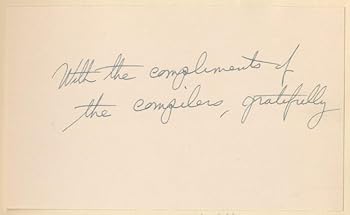 With the compliments of
the compilers, gratefully